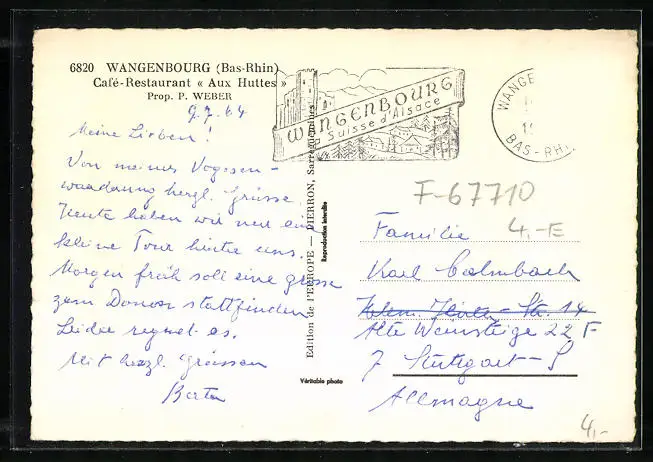 6820 WANGENBOURG (Bas-Rhin)
Café-Restaurant « Aux Huttes »
Prop. P. WEBER
9.7.64
Meine Lieben!
Von meiner Vogesen-
wanderung herzl. Grüsse.
Heute haben wir nun eine
kleine Tour hinter uns.
Morgen früh soll eine grosse
zum Donon stattfinden
Leider regnet es.
Mit herzl. Grüssen
WANGENBOURG
Suisse d'Alsace
WANGE
BAS-RHI
Edition de l'EUROPE — PIERRON, Sarreguemines
Reproduction interdite
Véritable photo
F-67710
4,-E
Familie
Karl Calmbach
Str. 14
Alte Weinsteige 22 F
7 Stuttgart-S
Allemagne
4,-